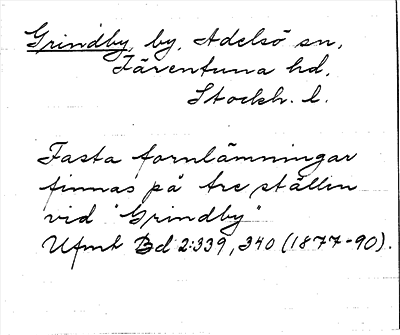 Grindby, by, Adelsö sn,
Färentuna hd,
Stockh. l.
Fasta fornlämningar
finnas på tre ställen
vid "Grindby"
Ufmt Bd 2:339, 340 (1877-90).